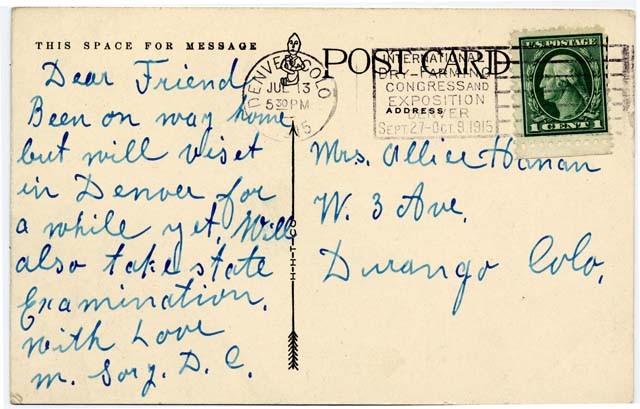 THIS SPACE FOR MESSAGE
POST CARD
DENVER COLO
JUL 13
5 30 PM
INTERNATIONAL
DRY-FARMING
CONGRESS AND
EXPOSITION
DENVER
SEPT. 27-OCT. 9, 1915
ADDRESS
U.S. POSTAGE
1 CENT 1
Dear Friend
Been on way home
but will viset
in Denver for
a while yet, Will
also take state
Examination.
with Love
M. D. C.
Mrs. Allice Hanan
W. 3 Ave,
Durango Colo,
H-H-T-CO